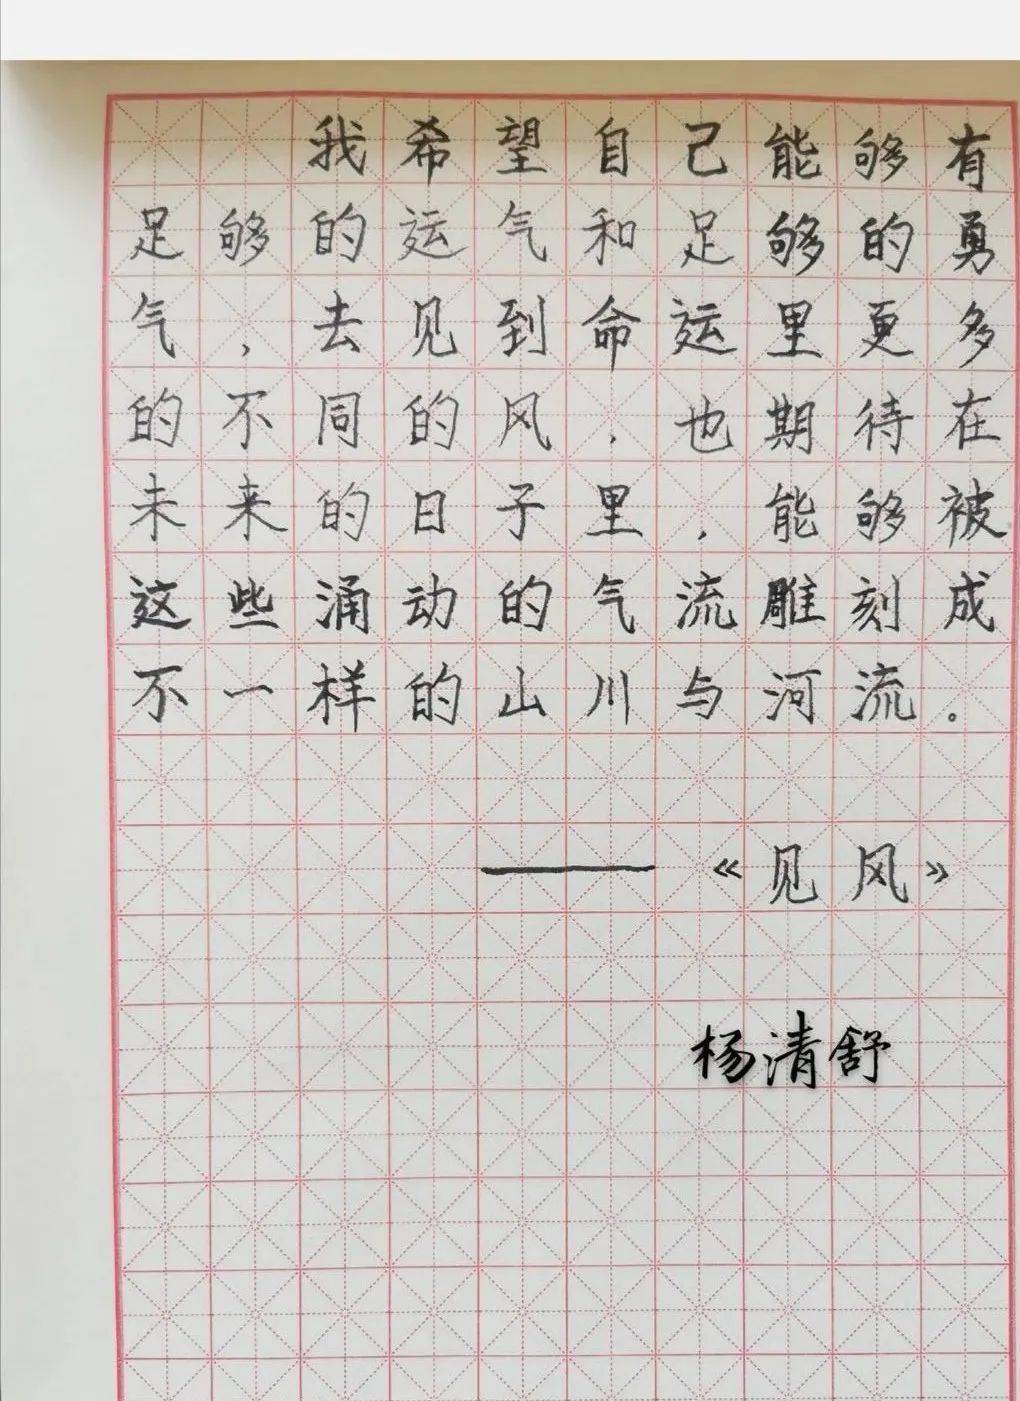 我希望自己能够有
足够的运气和足够的勇
气，去见到命运里更多
的不同的风，也期待在
未来的日子里，能够被
这些涌动的气流雕刻成
不一样的山川与河流。
——《见风》
杨清舒